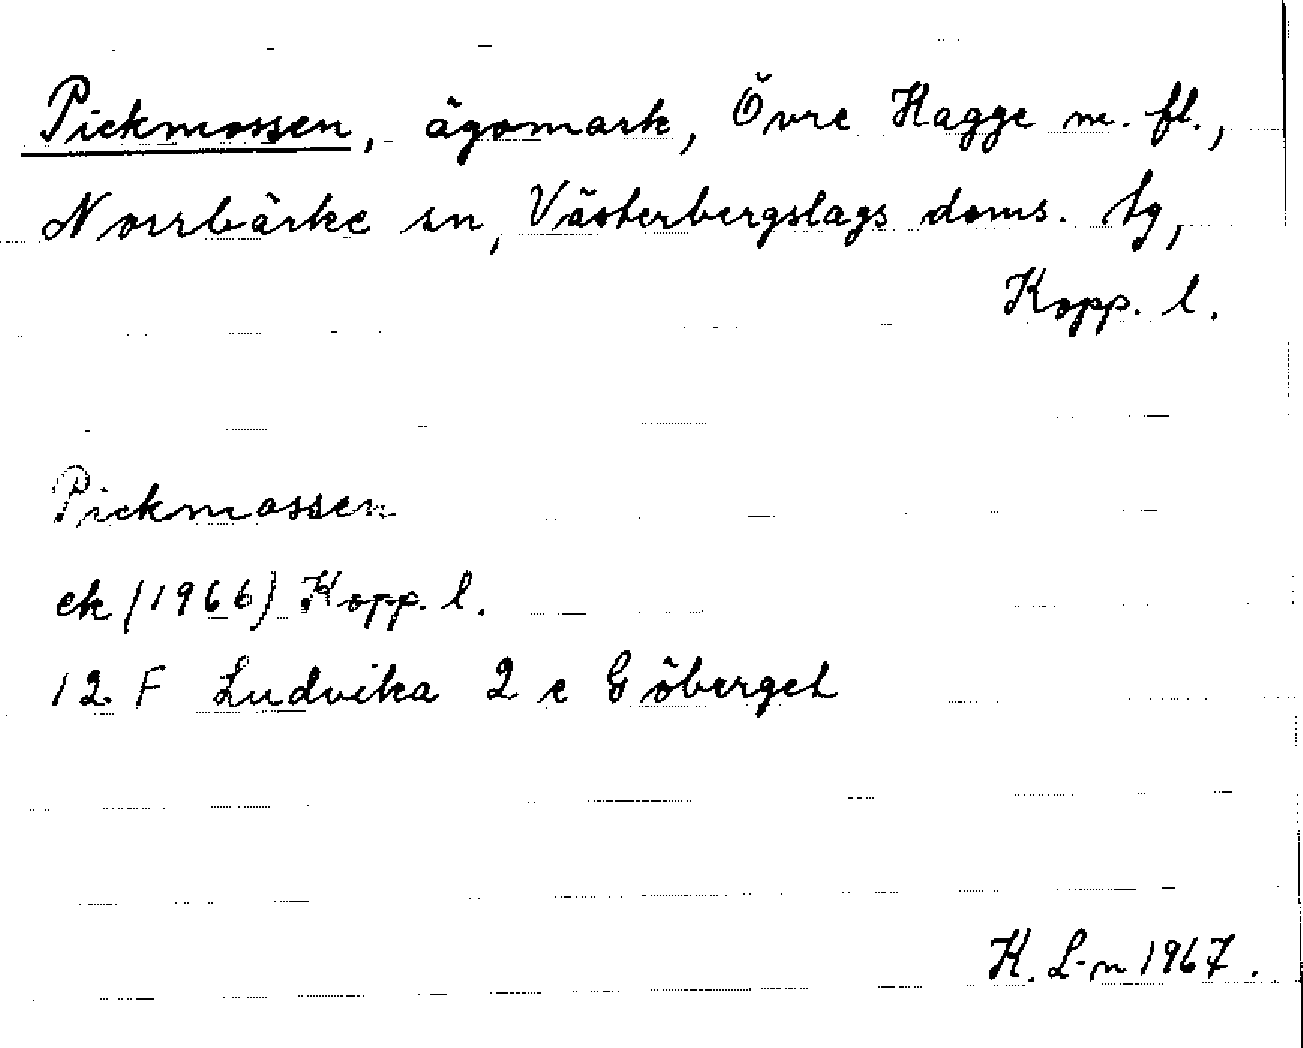 Pickmossen, ägomark, Övre Hagge m. fl.,
Norrbärke sn, Västerbergslags doms. tg,
Kopp. l.
Pickmossen
ek (1966) Kopp. l.
12 F Ludvika 2 e Göberget
K. L-n 1967.